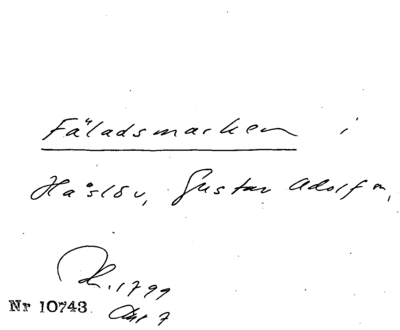 Fäladsmarken i
Håslöv, Gustav Adolf
1799
Nr 10743 Akt 7